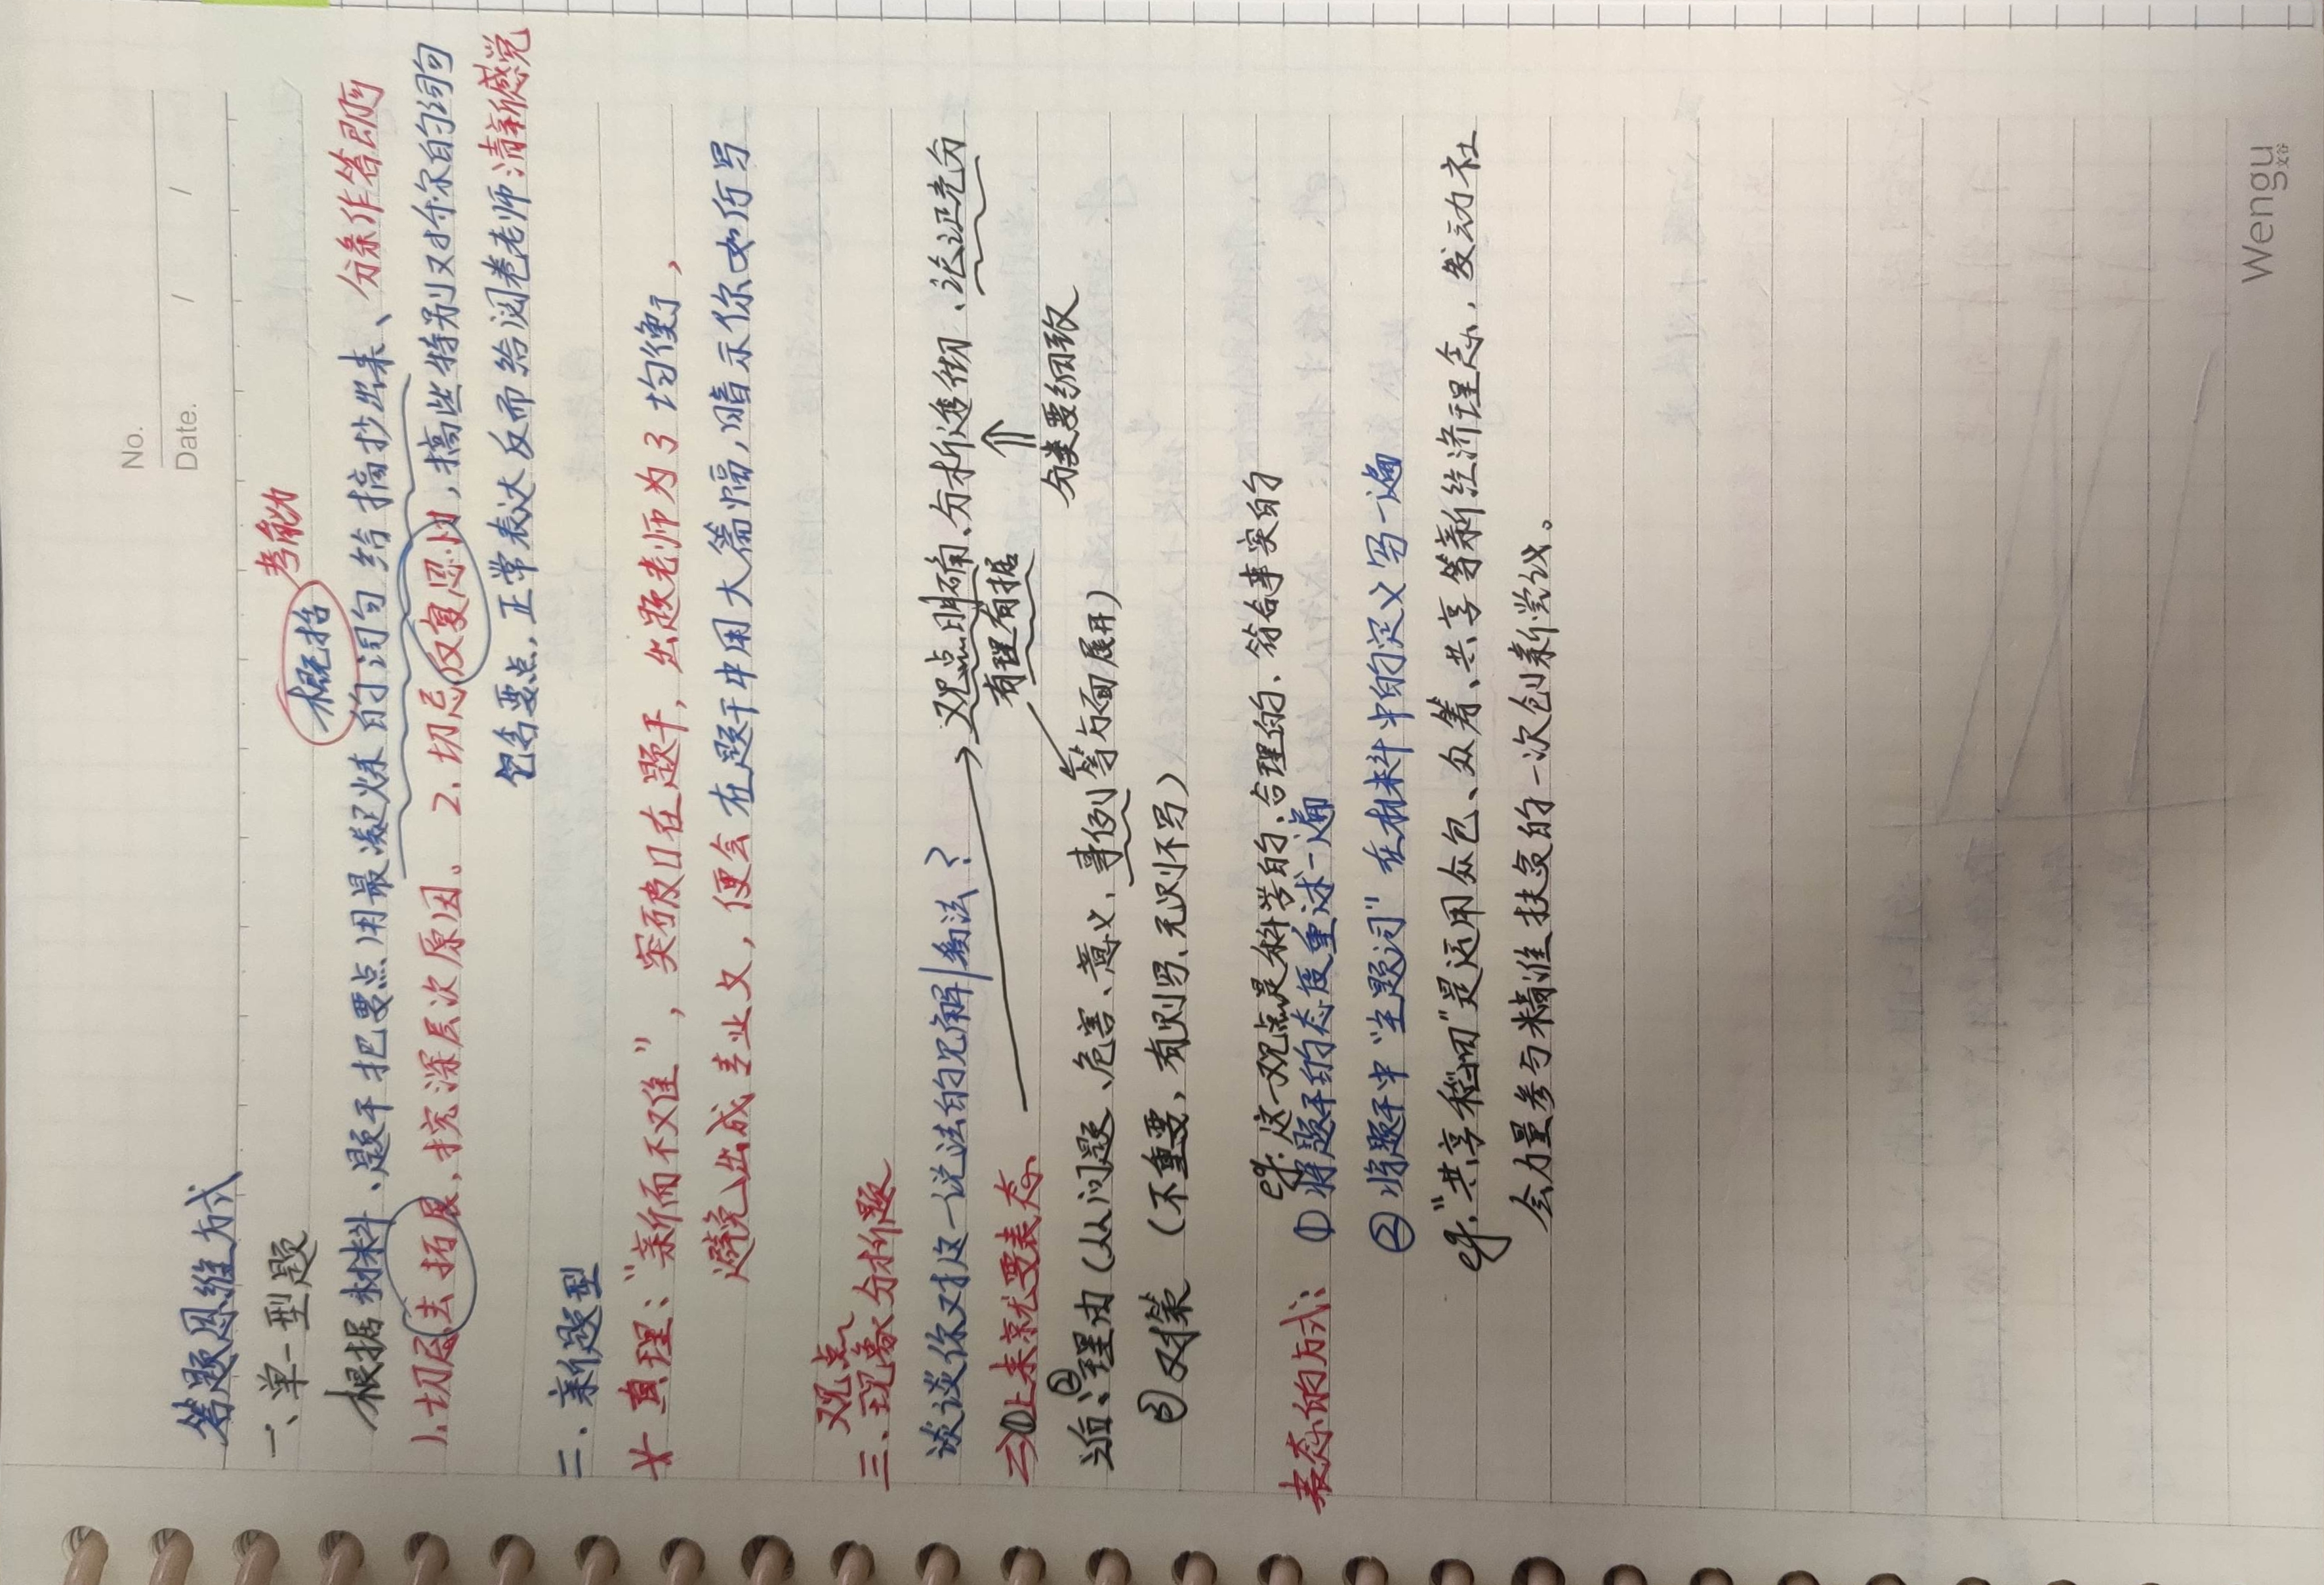 No.
Date. / /
答题思维方式
一、单一型题
概括 考能力
根据材料、题干把要点用最凝炼的词句给摘抄出来、分条作答即可
1.切忌去拓展,挖深层次原因。 2.切忌反复思忖,搞些特别对仗的词句
包含要点,正常表达反而给阅卷老师清新感觉
二.新题型
* 真理:“新而不难”,突破口在题干,出题老师为了均衡,
避免出成专业文,便会在题干中用大篇幅,暗示你如何写
观点
三、现象分析题
谈谈你对这一说法的见解/看法?
观点明确、分析透彻、论证充分
有理有据
=>①上来就要表态
分类要细致
②理由(从问题、危害、意义、事例等方面展开)
③对策 (不重要,有则写、无则不写)
eg.这一观点是科学的、合理的、符合事实的
表态的方式: ①将题干的态度重述一遍
②将题干中“主题词”在材料中的定义写一遍
eg.“共享稻田”是运用众包、众筹、共享等新经济理念,发动社
会力量参与精准扶贫的一次创新尝试。
Wengu
文谷